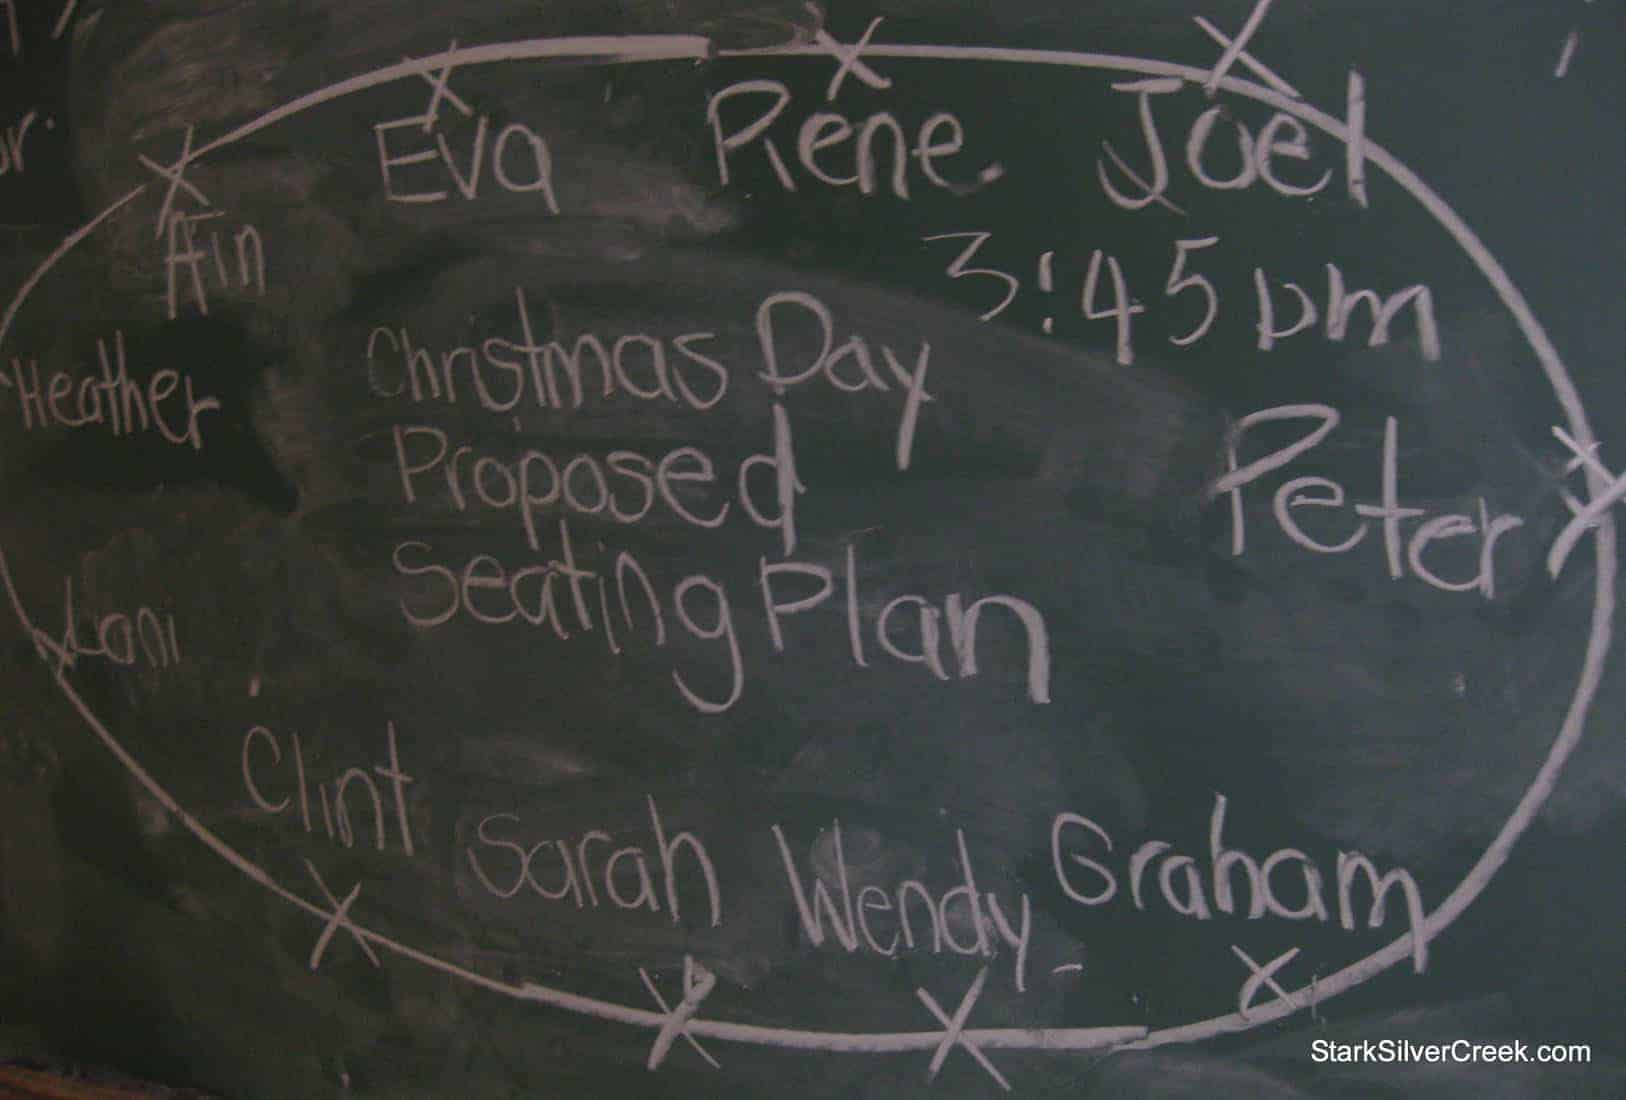 or.
Eva Rene Joel
Ain
3:45 pm
Heather
Christmas Day
Proposed
Seating Plan
Peter
Loni
Clint
Sarah Wendy Graham
StarkSilverCreek.com